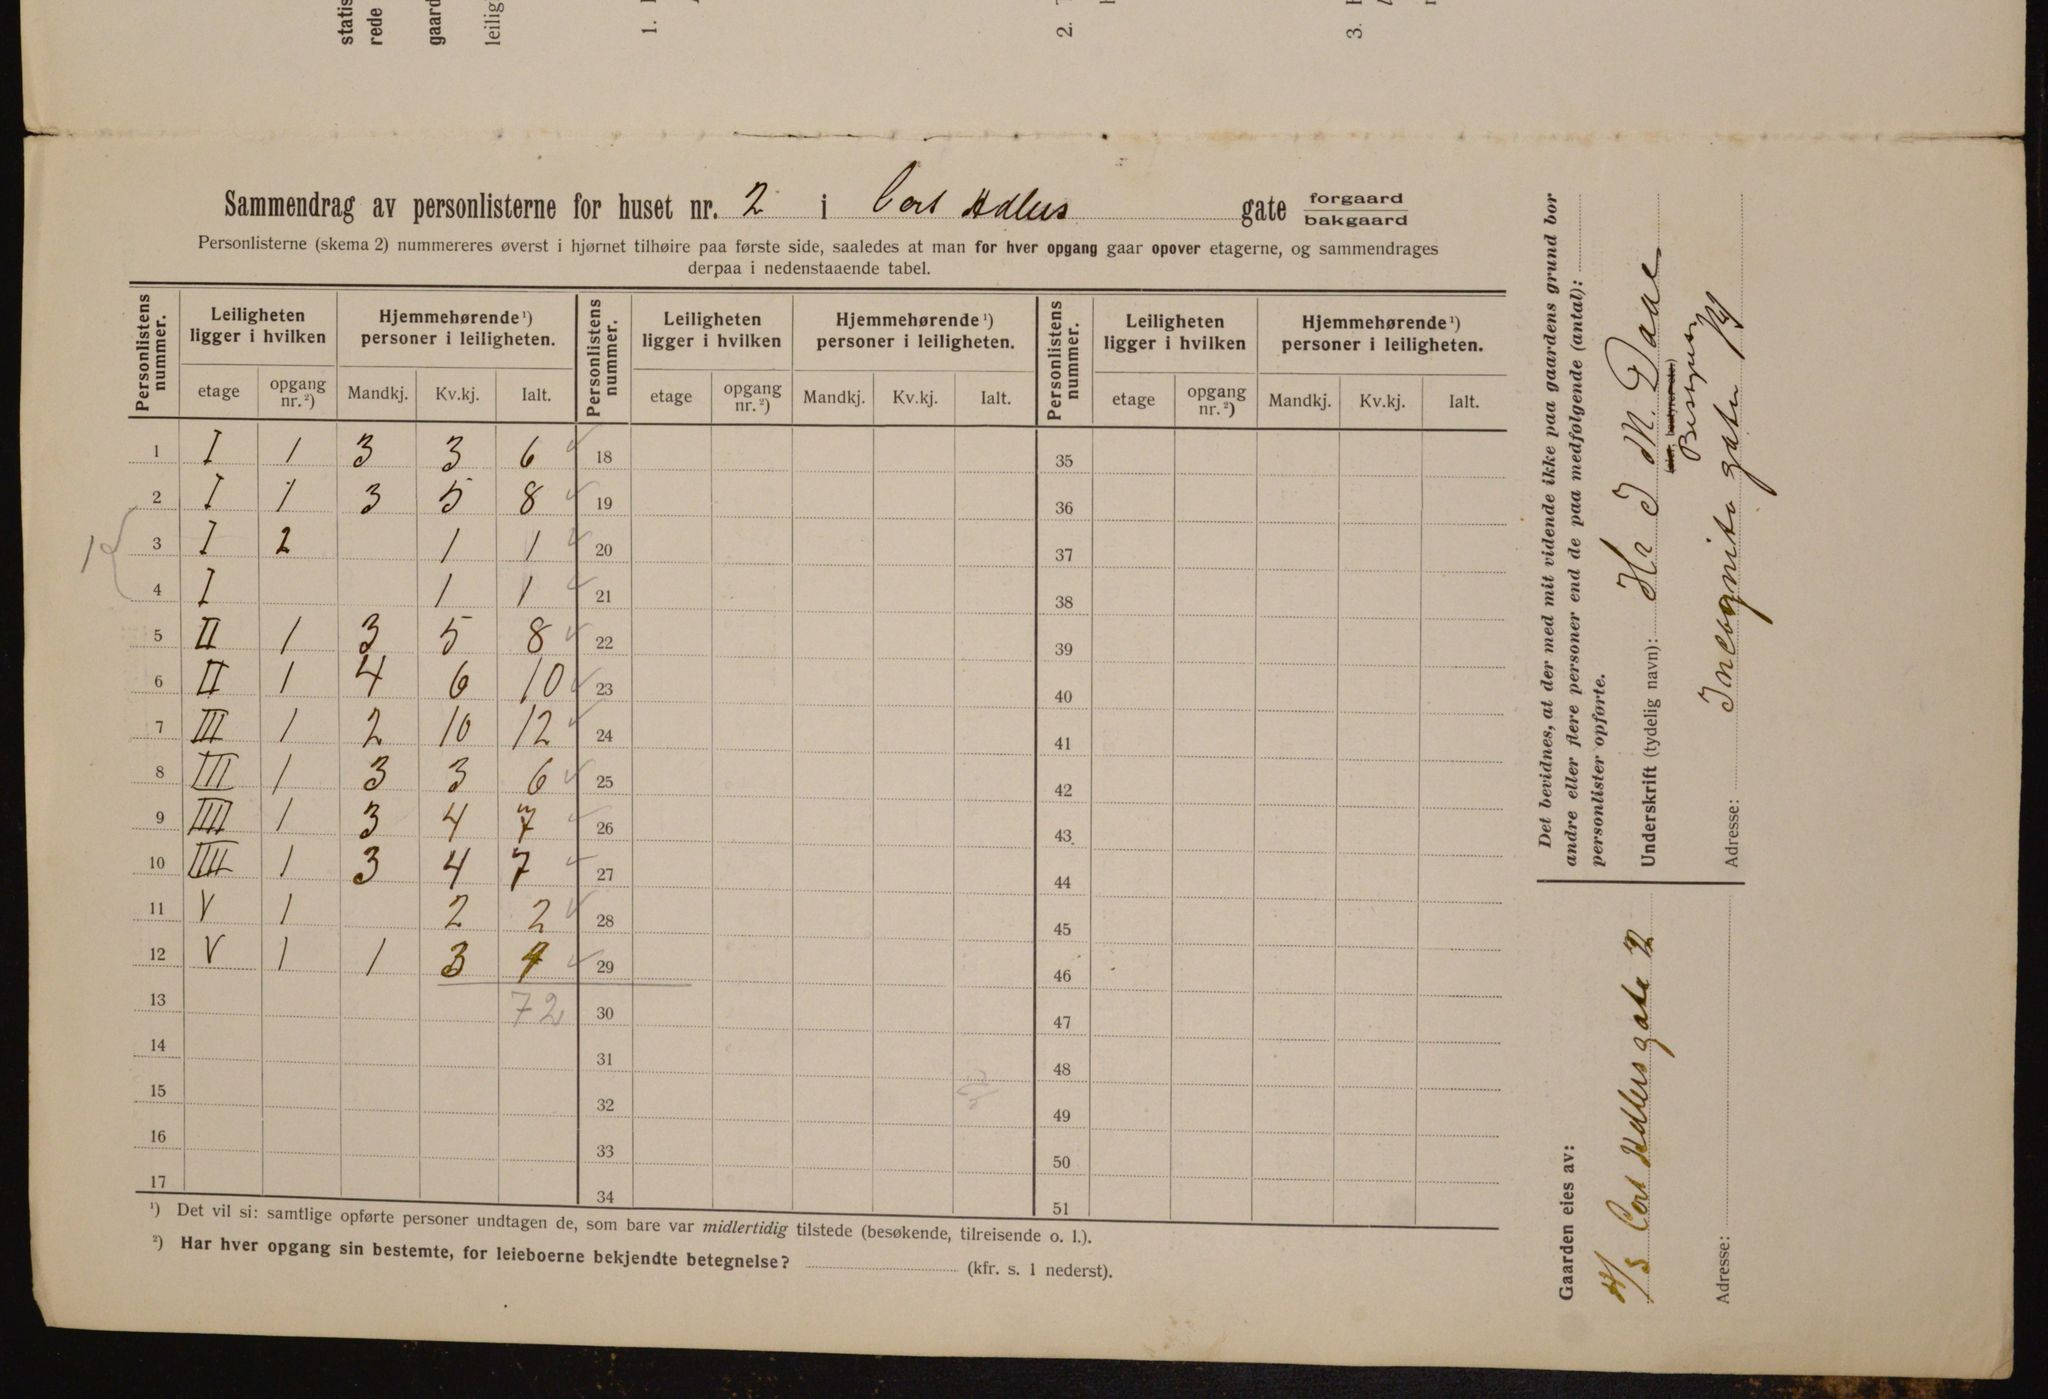 statis
rede
gaard
leilig
1.
2.
3.
Sammendrag av personlisterne for huset nr. 2 i Cort Adlers gate forgaard
bakgaard
Personlisterne (skema 2) nummereres øverst i hjørnet tilhøire paa første side, saaledes at man for hver opgang gaar opover etagerne, og sammendrages
derpaa i nedenstaaende tabel.
Personlistens nummer. Leiligheten ligger i hvilken Hjemmehørende ¹) personer i leiligheten. Personlistens nummer. Leiligheten ligger i hvilken Hjemmehørende ¹) personer i leiligheten. Personlistens nummer. Leiligheten ligger i hvilken Hjemmehørende ¹) personer i leiligheten.
etage opgang nr. ²) Mandkj. Kv.kj. Ialt. etage opgang nr. ²) Mandkj. Kv.kj. Ialt. etage opgang nr. ²) Mandkj. Kv.kj. Ialt.
1 I 1 3 3 6 18 35
2 I 1 3 5 8 19 36
3 I 2 1 1 20 37
4 I 1 1 21 38
5 II 1 3 5 8 22 39
6 II 1 4 6 10 23 40
7 III 1 2 10 12 24 41
8 III 1 3 3 6 25 42
9 IIII 1 3 4 7 26 43
10 IIII 1 3 4 7 27 44
11 V 1 2 2 28 45
12 V 1 1 3 4 29 46
13 72 30 47
14 31 48
15 32 49
16 33 50
17 34 51
¹) Det vil si: samtlige opførte personer undtagen de, som bare var midlertidig tilstede (besøkende, tilreisende o. l.).
²) Har hver opgang sin bestemte, for leieboerne bekjendte betegnelse? (kfr. s. 1 nederst).
Det bevidnes, at der med mit vidende ikke paa gaardens grund bor
andre eller flere personer end de paa medfølgende (antal):
personlister opførte.
Underskrift (tydelig navn): Hr J M. Daae
Bestyrer
Adresse: Incognito gaten
Gaarden eies av:
A/S Cort Adlersgate 2
Adresse: